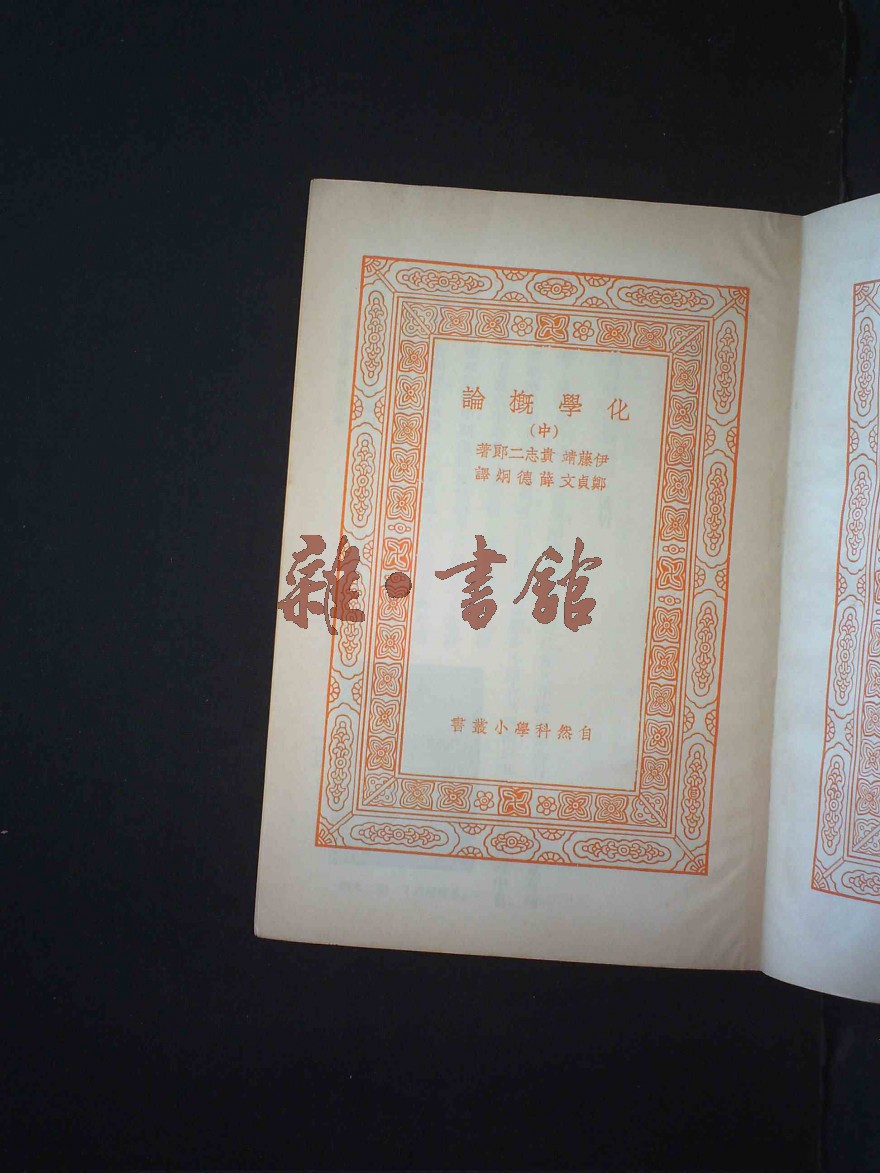 化學概論
（中）
伊藤靖 貴志二郎著
鄭貞文 薛德炯譯
雜·書館
自然科學小叢書